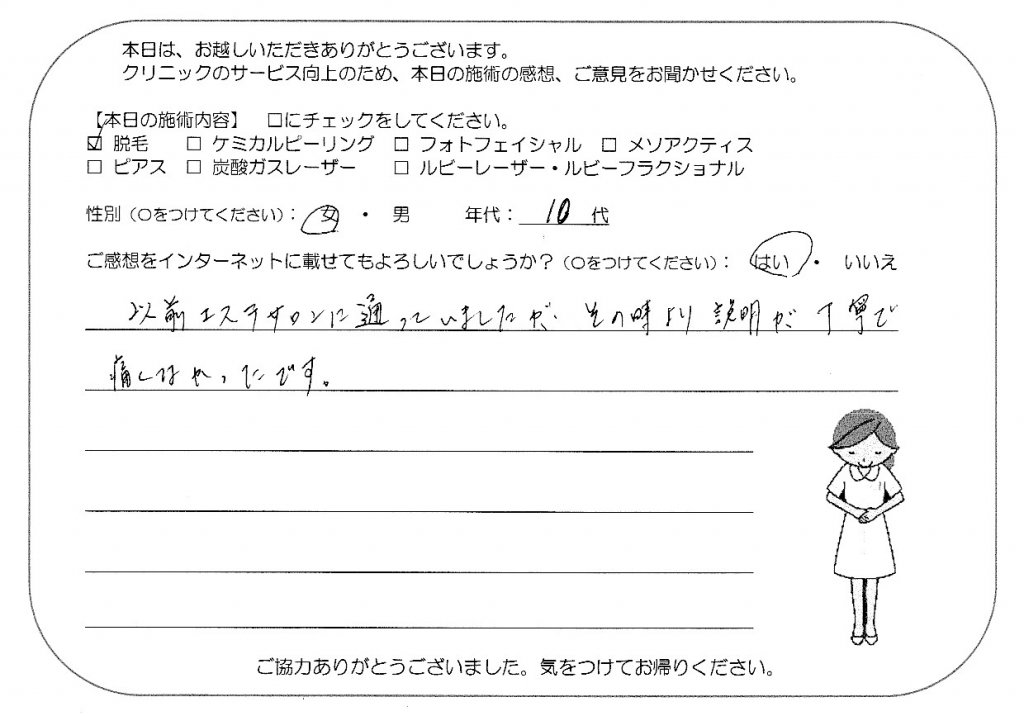 本日は、お越しいただきありがとうございます。
クリニックのサービス向上のため、本日の施術の感想、ご意見をお聞かせください。
【本日の施術内容】 □にチェックをしてください。
☑ 脱毛 □ ケミカルピーリング □ フォトフェイシャル □ メソアクティス
□ ピアス □ 炭酸ガスレーザー □ ルビーレーザー・ルビーフラクショナル
性別（○をつけてください）： 女 ・ 男 年代： 10 代
ご感想をインターネットに載せてもよろしいでしょうか？（○をつけてください）： はい ・ いいえ
以前エステサロンに通っていましたが、その時より説明が丁寧で
痛くなかったです。
ご協力ありがとうございました。気をつけてお帰りください。